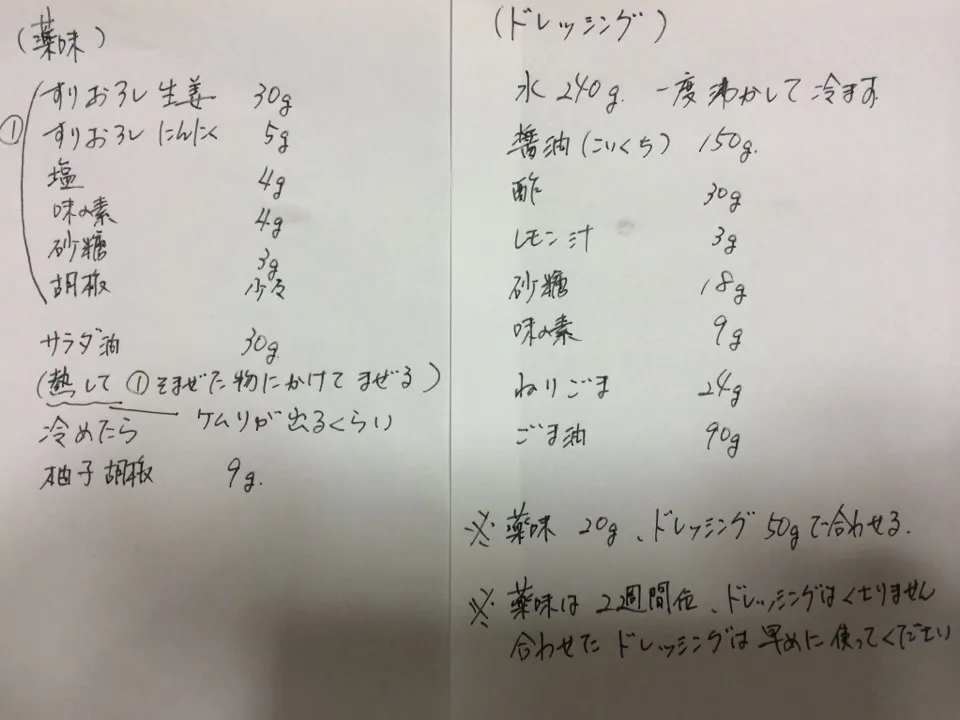 (薬味)
① すりおろし生姜 30g
すりおろしにんにく 5g
塩 4g
味の素 4g
砂糖 3g
胡椒 少々
サラダ油 30g
(熱して ①をまぜた物にかけてまぜる)
ケムリが出るくらい
冷めたら
柚子胡椒 9g.
(ドレッシング)
水 240g. 一度沸かして冷ます
醤油(こいくち) 150g.
酢 30g
レモン汁 3g
砂糖 18g
味の素 9g
ねりごま 24g
ごま油 90g
※ 薬味 20g、ドレッシング 50gで合わせる.
※ 薬味は 2週間位、ドレッシングはくさりません
合わせたドレッシングは早めに使ってください